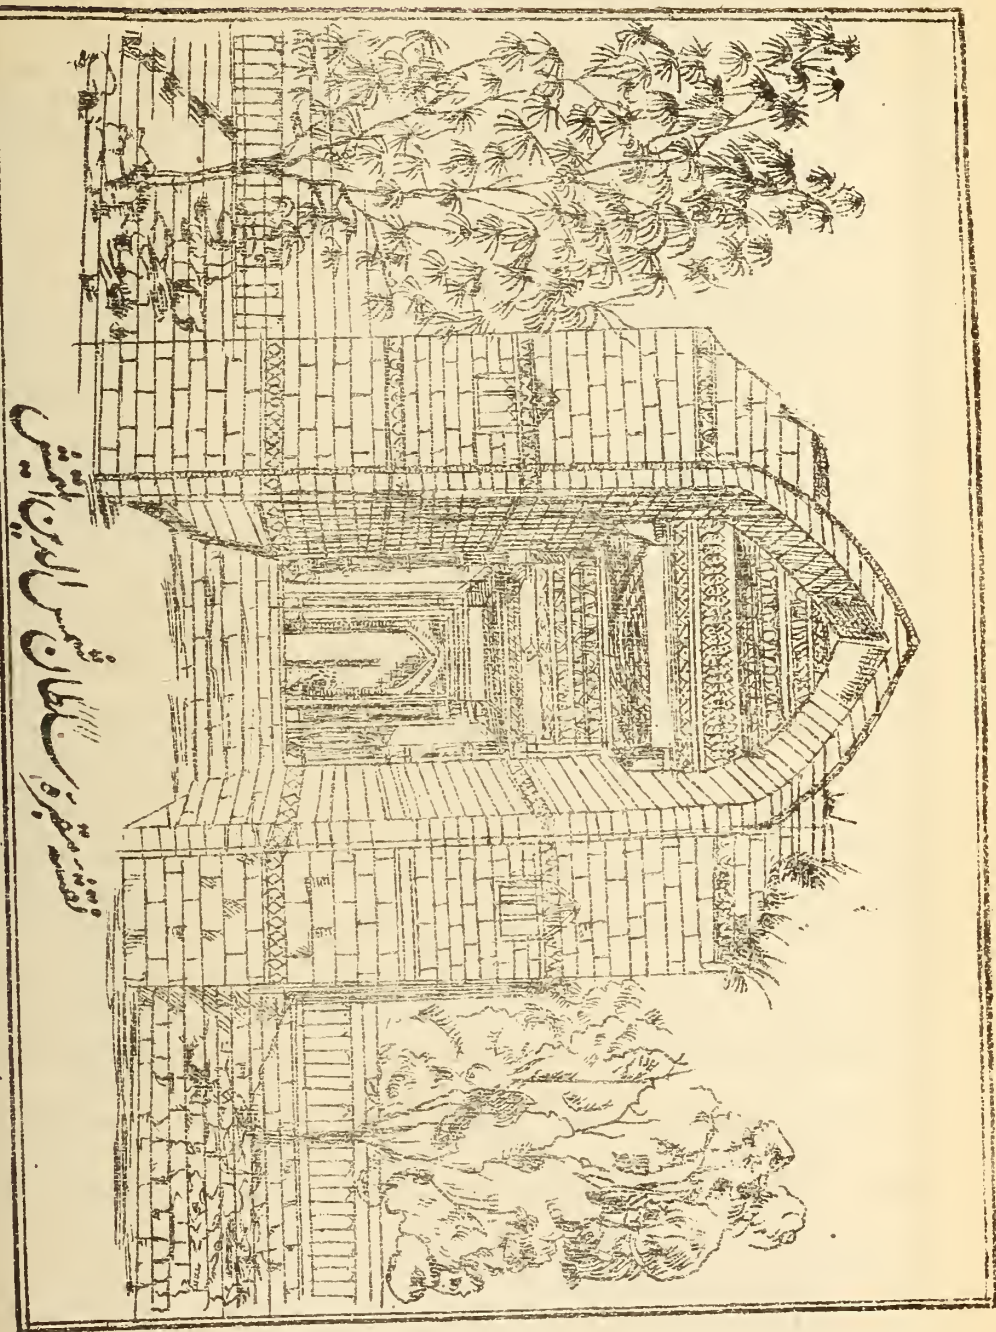 نقشہ مقبرہ سلطان شمس الدین التمش